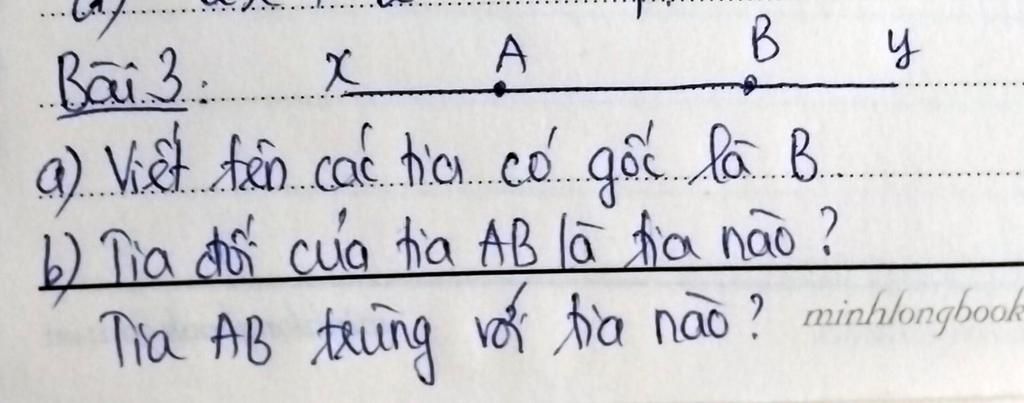 a)
Bài 3: x A B y
a) Viết tên các tia có gốc là B.
b) Tia đối của tia AB là tia nào?
Tia AB trùng với tia nào?
minhlongbook